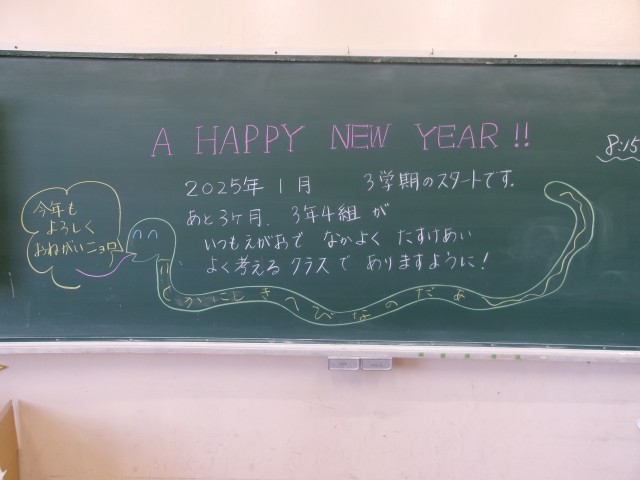 A HAPPY NEW YEAR!!
8:15
2025年1月 3学期のスタートです.
あと3ヶ月、3年4組が
いつもえがおで なかよく たすけあい
よく考える クラスで ありますように!
今年も
よろしく
おねがいニョロ
にしきへびなのだぁ